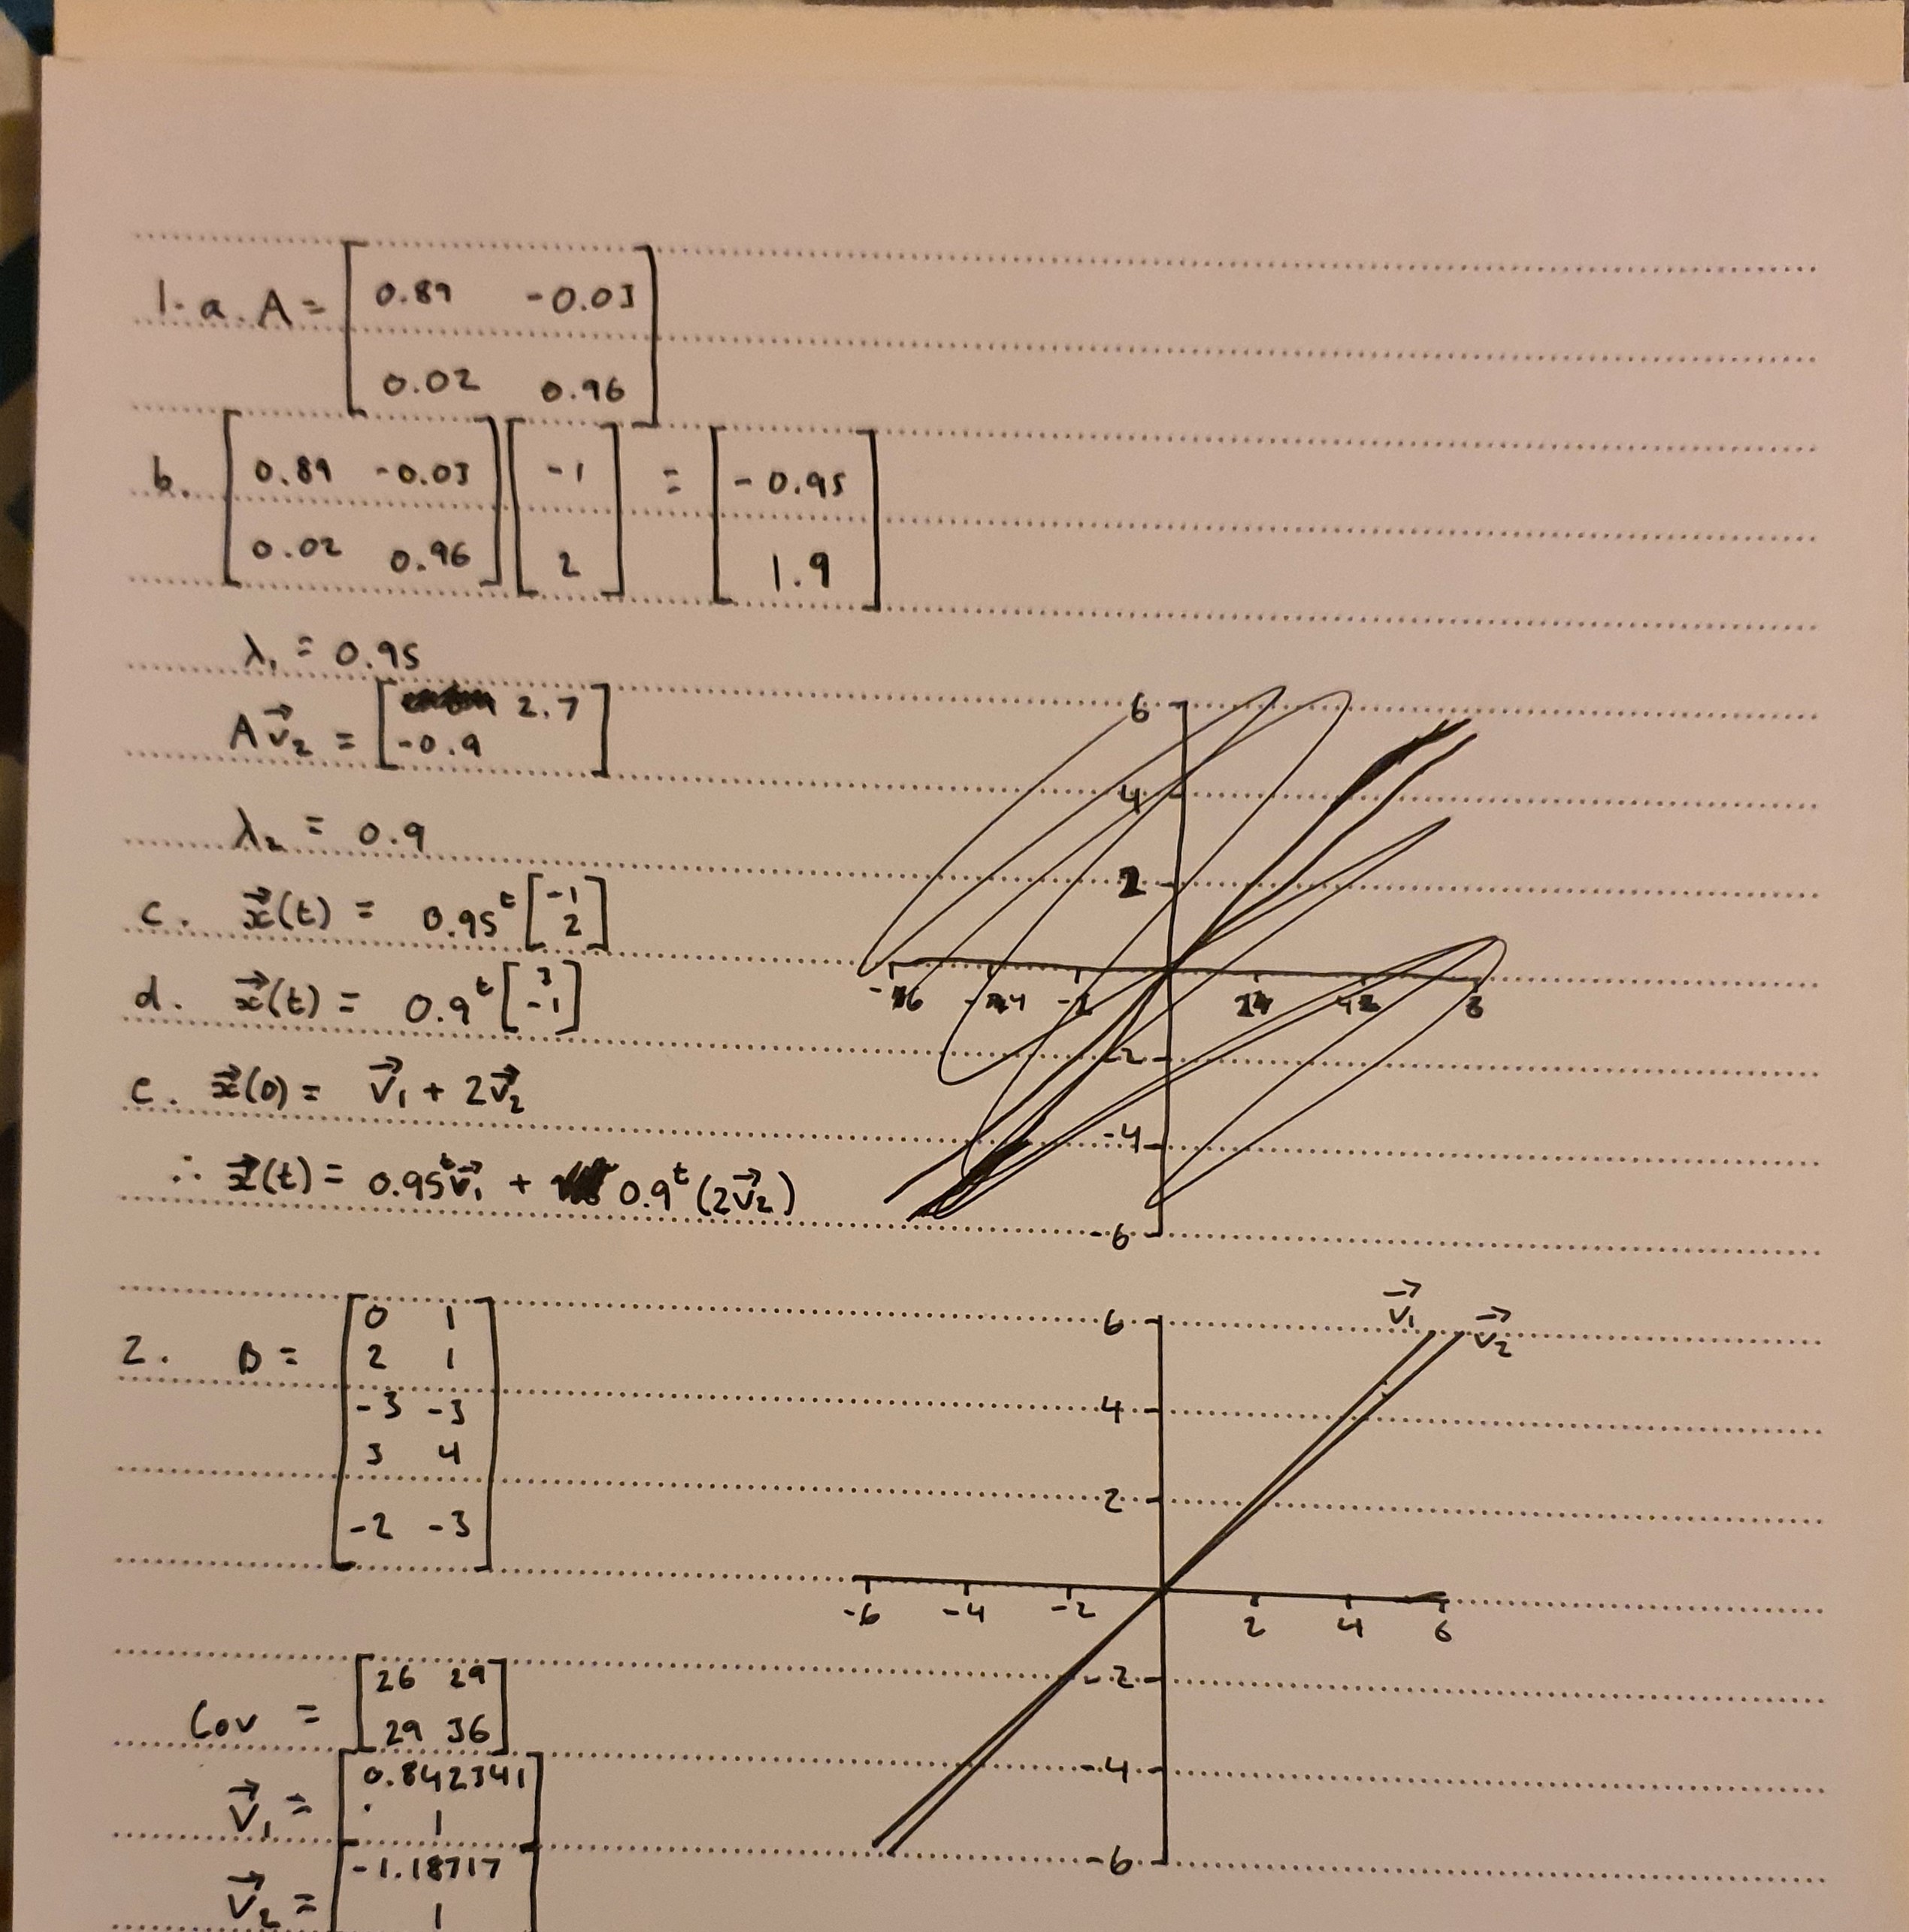 1. a. A = [ 0.89 -0.03
0.02 0.96 ]
b. [ 0.89 -0.03
0.02 0.96 ] [ -1
2 ] = [ -0.95
1.9 ]
λ₁ = 0.95
Av⃗₂ = [ 2.7
-0.9 ]
λ₂ = 0.9
c. x⃗(t) = 0.95ᵗ [ -1
2 ]
d. x⃗(t) = 0.9ᵗ [ 3
-1 ]
e. x⃗(0) = v⃗₁ + 2v⃗₂
∴ x⃗(t) = 0.95ᵗv⃗₁ + 0.9ᵗ(2v⃗₂)
6
4
2
-2
-2
-4
-6
2. B = [ 0 1
2 1
-3 -3
3 4
-2 -3 ]
Cov = [ 26 29
29 36 ]
v⃗₁ = [ 0.842341
1 ]
v⃗₂ = [ -1.18717
1
v⃗₁ v⃗₂
6
4
2
-6 -4 -2 2 4 6
-2
-4
-6